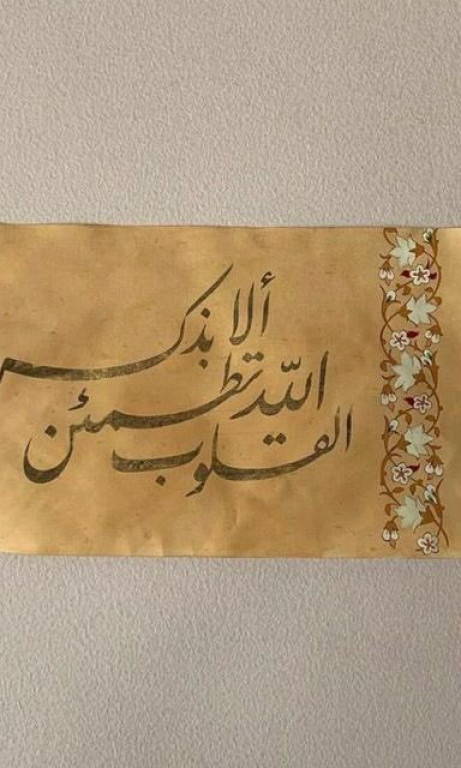 ألا بذكر
اللّه تطمئن
القلوب